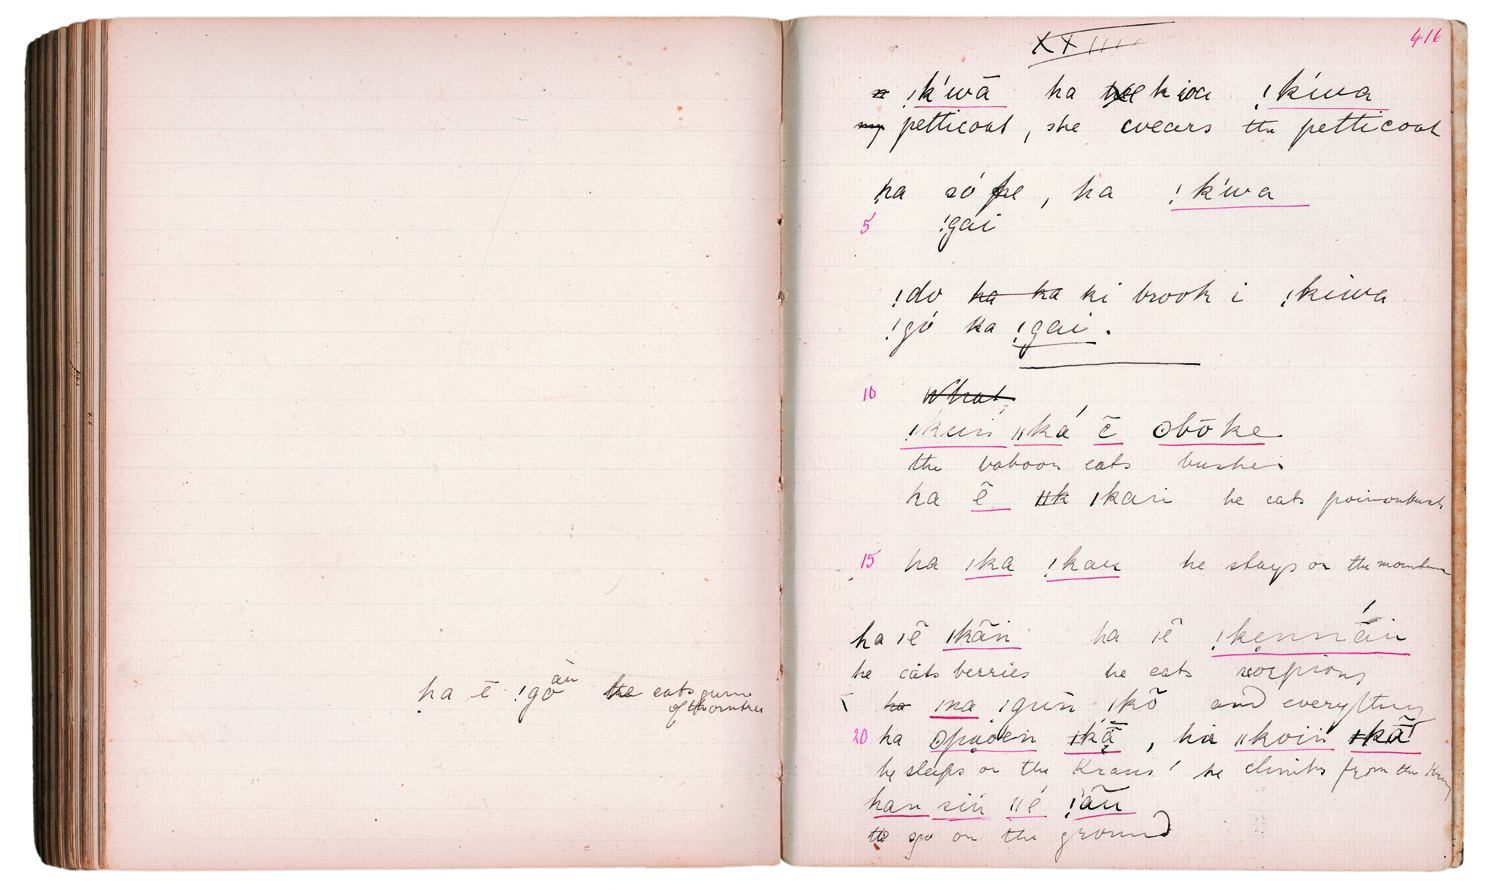 ha ē !gõaù the eats gum
of thorntree
XXIIII
416
ǃk'wā ha kioa ǃk'wa
my petticoat, she wears the petticoat
ha só pe, ha ǃk'wa
5 ǃgai
ǃdo ha ha ki brook i ǃkiwa
ǃgó ka ǃgai.
10 What
ǃkuiń ǁká ē ʘbōke
the baboon eats bushes
ha ē ǁk ǀkań he eats poisonbush
15 ha ǀka ǃkau he stays on the mountain
ha ǀē ǀkãń ha ǀē ǃkẹnnãń
he eats berries he eats scorpions
ha ǀna ǀguń ǀkõ and everything
20 ha ʘpuóen ǀkã, ha ǁkoiń ǀkã
he sleeps on the Krans' he climbs from the Krans
han siń ǁé ǃãũ
to go on the ground